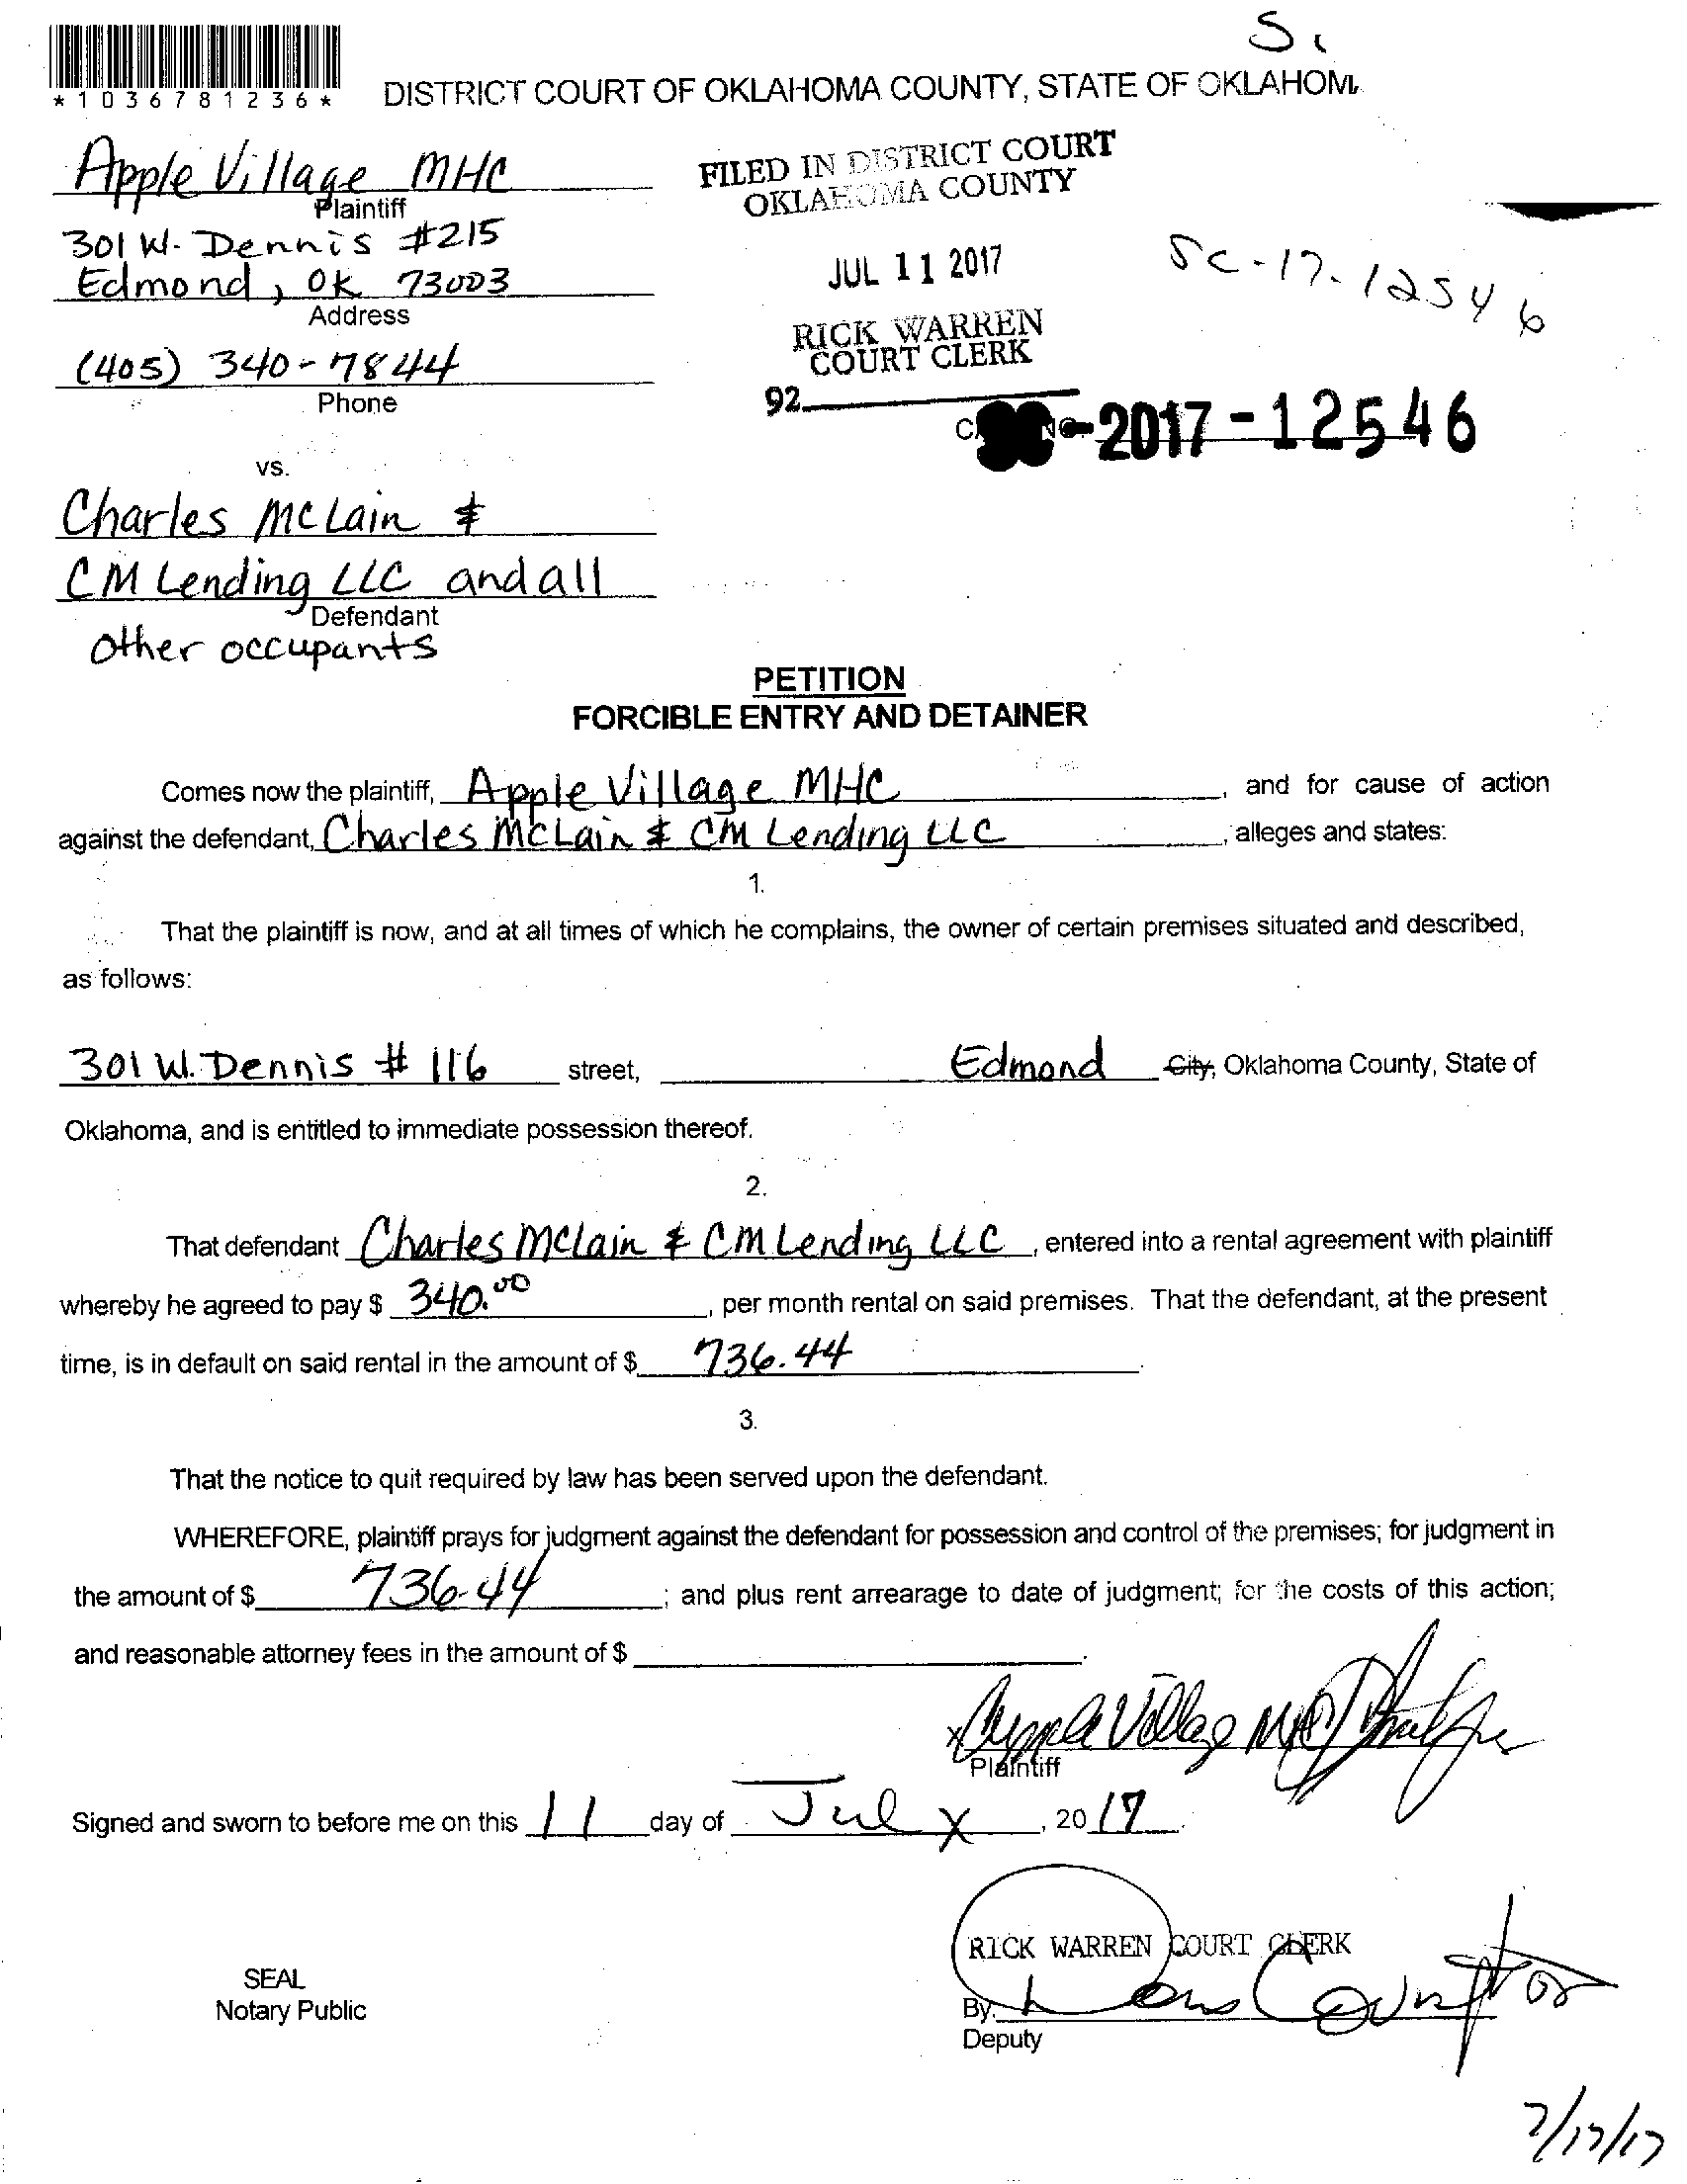 *1036781236*
DISTRICT COURT OF OKLAHOMA COUNTY, STATE OF OKLAHOM
Apple Village MHC
Plaintiff
301 W. Dennis #215
Edmond, OK 73003
Address
(405) 340-7844
Phone
FILED IN DISTRICT COURT
OKLAHOMA COUNTY
JUL 11 2017
RICK WARREN
COURT CLERK
92
SC-17-12546
-2017-12546
vs.
Charles McLain &
CM Lending LLC and all
Defendant
other occupants
PETITION
FORCIBLE ENTRY AND DETAINER
Comes now the plaintiff, Apple Village MHC, and for cause of action
against the defendant, Charles McLain & CM Lending LLC, alleges and states:
1.
That the plaintiff is now, and at all times of which he complains, the owner of certain premises situated and described,
as follows:
301 W. Dennis # 116 street, Edmond City, Oklahoma County, State of
Oklahoma, and is entitled to immediate possession thereof.
2.
That defendant Charles McLain & CM Lending LLC, entered into a rental agreement with plaintiff
whereby he agreed to pay $ 340.00, per month rental on said premises. That the defendant, at the present
time, is in default on said rental in the amount of $ 736.44.
3.
That the notice to quit required by law has been served upon the defendant.
WHEREFORE, plaintiff prays for judgment against the defendant for possession and control of the premises; for judgment in
the amount of $ 736.44; and plus rent arrearage to date of judgment; for the costs of this action;
and reasonable attorney fees in the amount of $ .
x Apple Village MHC
Plaintiff
Signed and sworn to before me on this 11 day of July, 2017.
RICK WARREN COURT CLERK
SEAL
Notary Public
By:
Deputy
7/17/17